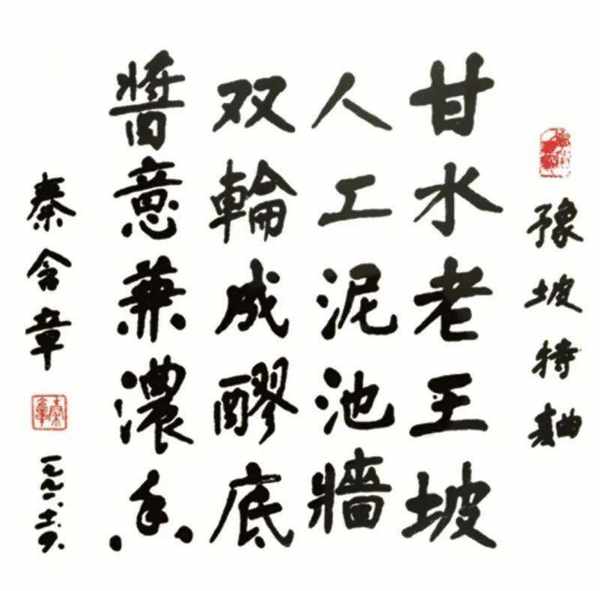 豫坡特麯
甘水老王坡
人工泥池牆
双輪成醪底
醬意兼濃香
秦含章